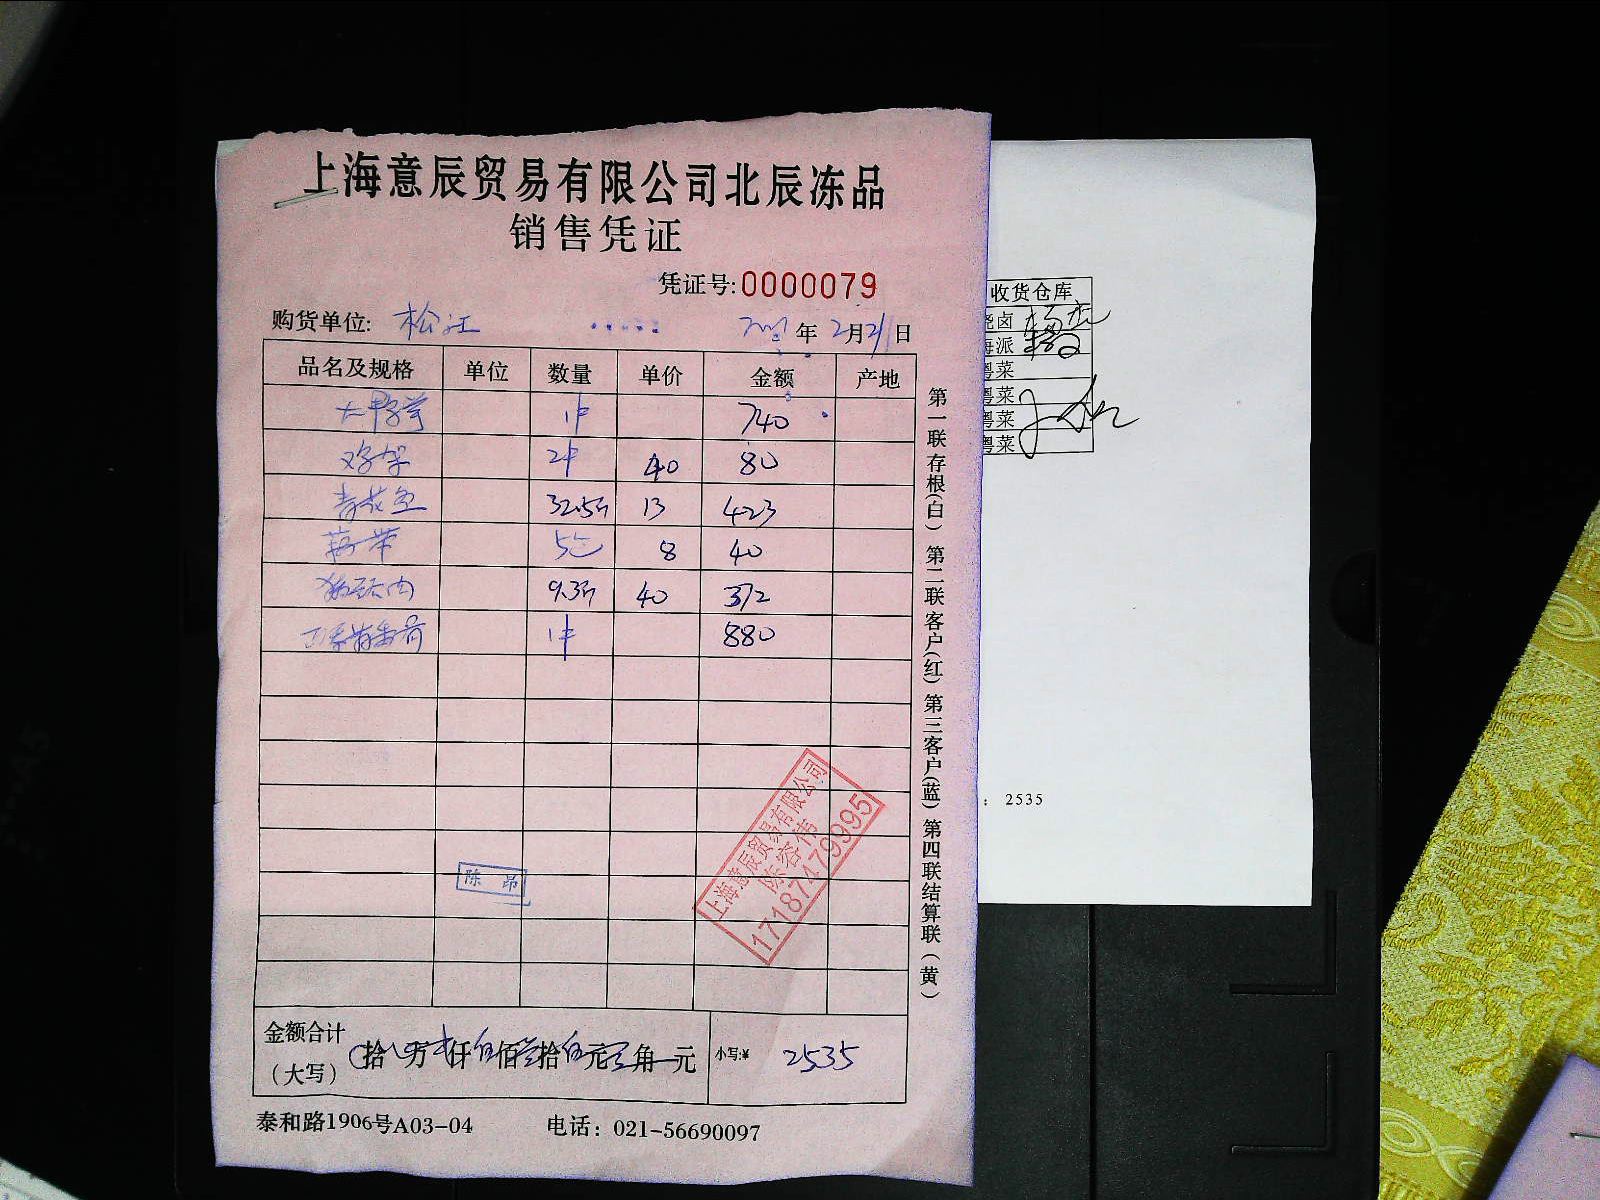 上海意辰贸易有限公司北辰冻品
销售凭证
凭证号:0000079
购货单位: 松江 年2月21日
品名及规格 单位 数量 单价 金额 产地
1件 740
鸡架 2件 40 80
青花鱼 32.5斤 13 423
藕带 5包 8 40
猪头肉 9.3斤 40 372
1件 880
陈昂
上海意辰贸易有限公司
陈容伟
17187479995
金额合计
(大写) 拾 万 仟 佰 拾 元 角 元 小写:¥ 2535
泰和路1906号A03-04 电话: 021-56690097
第一联存根(白) 第二联客户(红) 第三客户(蓝) 第四联结算联(黄)
收货仓库
烧卤
海派
粤菜
粤菜
粤菜
粤菜
: 2535